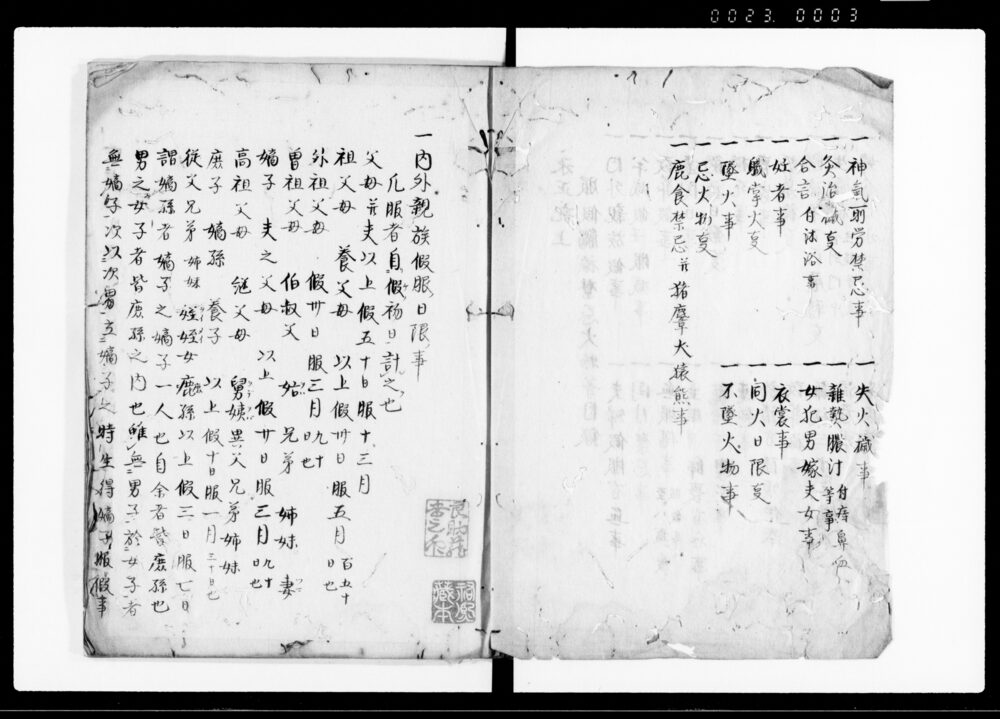 0023. 0003
一神氣明労禁忌事
一灸治鍼事
一合言付沐浴事
一妊者事
一職掌火事
一墜火事
一忌火物事
一鹿食禁忌并猪麞犬猿熊事
一失火穢事
一雜熱膿汁付痔鼻血等事
一女犯男嫁夫女事
一衣裳事
一間火日限事
一不墜火物事
一内外親族假服日限事
凡服者自假初日計之也
父母并夫 以上假五十日服十三月
祖父母 養父母 以上假卅日服五月百五十日也
外祖父母 假卅日服三月九十日也
曽祖父母 伯叔父 姑 兄弟 姉妹 妻
嫡子 夫之父母 以上假廿日服三月九十日也
高祖父母 継父母 舅姨異父兄弟姉妹
庶子 嫡孫 養子 以上假十日服一月三十日也
従父兄弟姉妹 姪姪女庶孫以上假三日服七日
謂嫡孫者嫡子之嫡子一人也自余者皆庶孫也
男之女子者皆庶孫之内也雖無男子於女子者
無嫡子次以次男立嫡子之時生得嫡子服假事